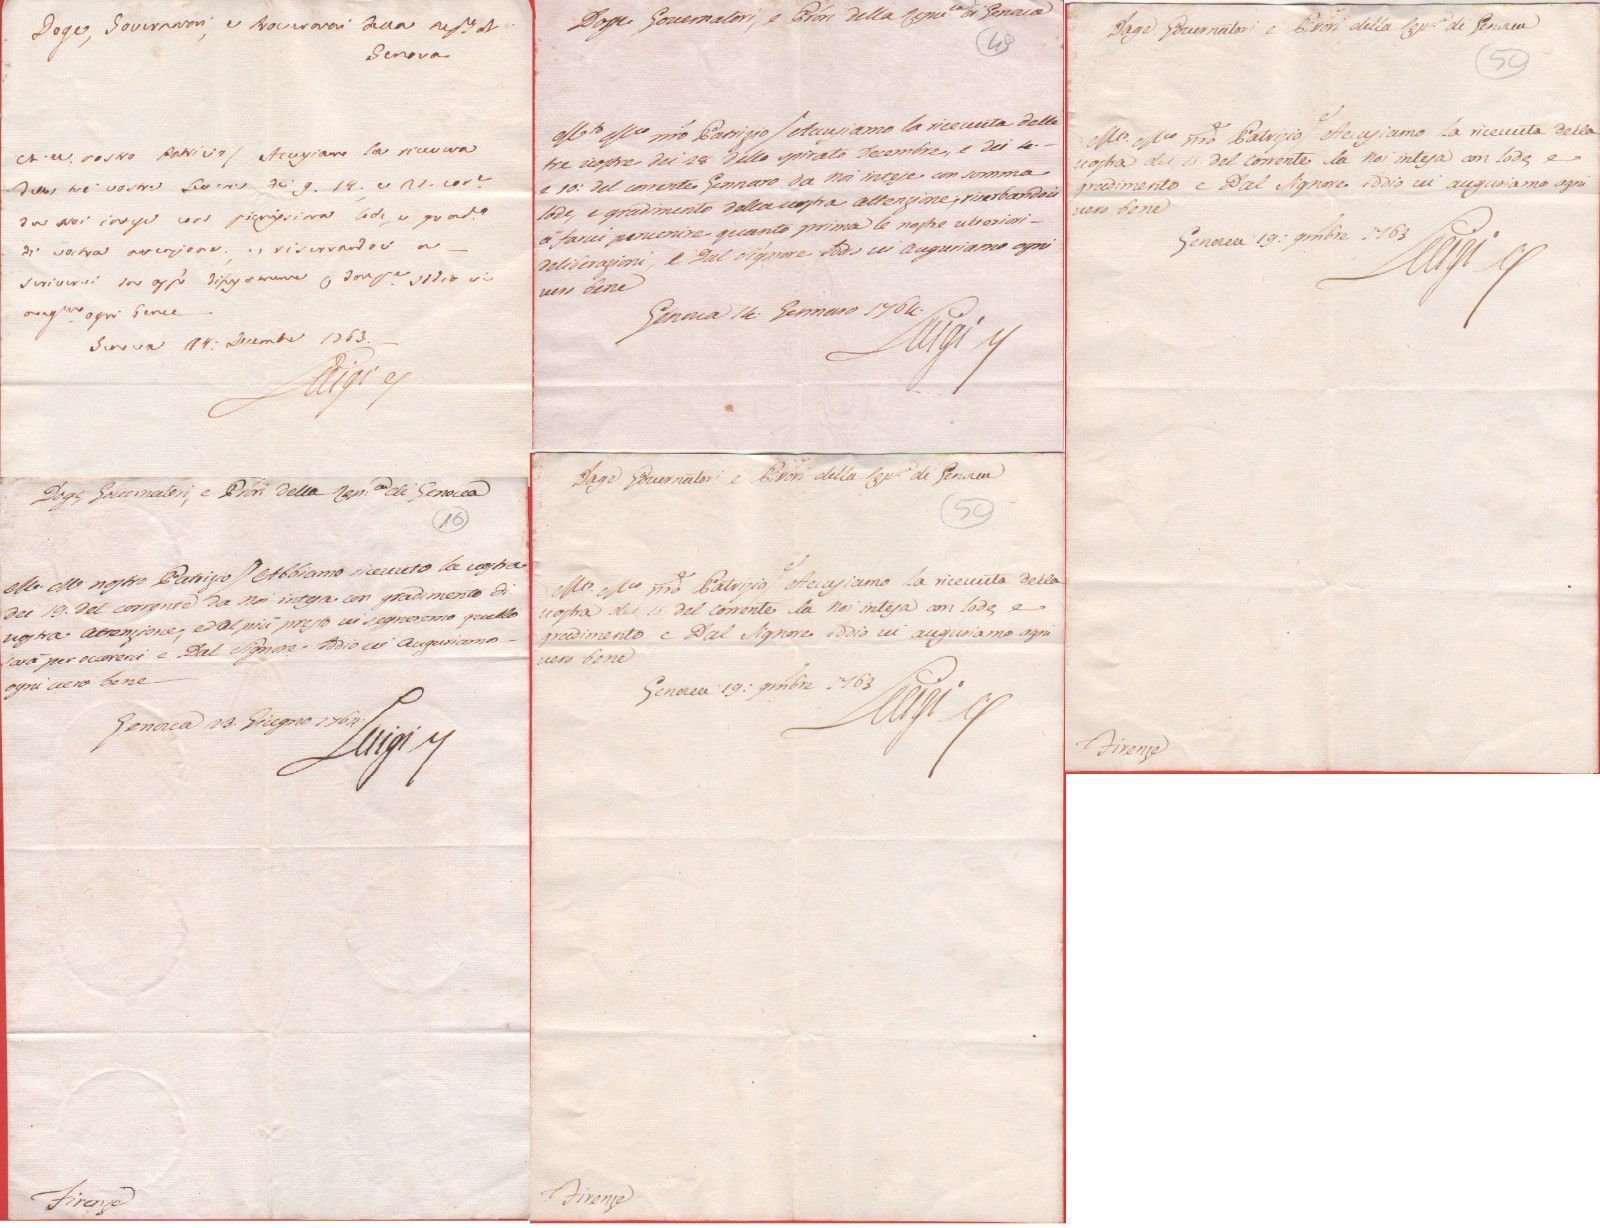 Doge, Governatori, e Procuratori della Rep.ca di
Genova
M. M. nostro Patrizio / Accusiamo la ricevuta
delle tre vostre Lettere de' 9. 14. e 21. corr.e
da noi intese con pienissima lode, e grad.o
di vostra attenzione, e riservandoci a
scrivervi
ogni bene
Genova 24: Decembre 1763.
Luigi
Doge, Governatori, e Pròri della Repu.ca di Genova
48
M.to M.co nr̃o Patrizio / Accusiamo la ricevuta delle
tre vostre dei 28 dello spirato Decembre, e dei 4
e 10: del corrente Gennaro da noi intese con somma
lode, e gradimento della vostra attenzione, riserbandoci
à farvi pervenire quanto prima le nostre ulteriori
deliberazioni, e Dal Signore Iddio vi auguriamo ogni
vero bene
Genova 14. Gennaro 1764.
Luigi
Doge Governatori e Pròri della Rep.ca di Genova
50
M.to M.co nr̃o Patrizio / Accusiamo la ricevuta della
vostra dei del corrente da noi intesa con lode, e
gradimento e Dal Signore Iddio vi auguriamo ogni
vero bene
Genova 19: 9mbre 1763
Luigi
Firenze
Doge, Governatori, e Pròri della Rep.ca di Genova
16
M.to M.co nostro Patrizio / Abbiamo ricevuto la vostra
dei 19. del corrente da noi intesa con gradimento di
vostra attenzione, e dal più presto vi segneremo quello
sarà per occorrerci e Dal Signore Iddio vi Auguriamo
ogni vero bene
Genova 23. Giugno 1764.
Luigi
Firenze
Doge Governatori e Pròri della Rep.ca di Genova
50
M.to M.co nr̃o Patrizio / Accusiamo la ricevuta della
vostra dei del corrente da noi intesa con lode, e
gradimento e Dal Signore Iddio vi auguriamo ogni
vero bene
Genova 19: 9mbre 1763
Luigi
Firenze